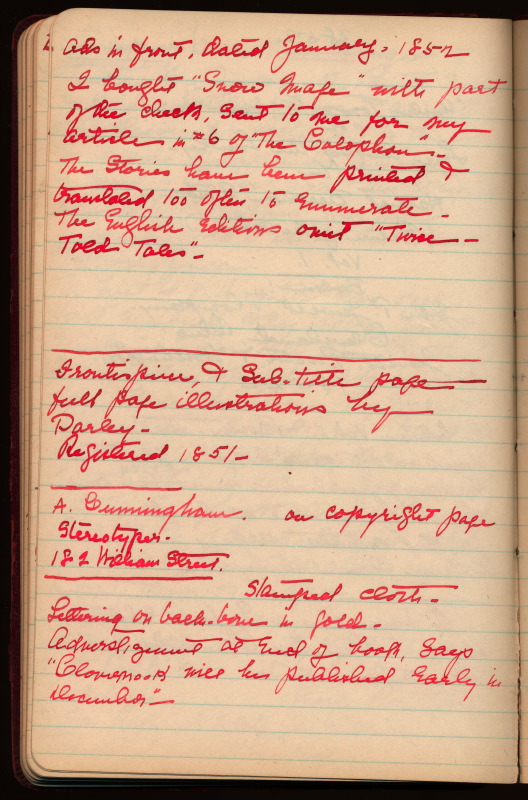 Ads in front, dated January - 1852
I bought "Snow Image" with part
of the check, sent to me for my
article in #6 of "The Colophon" -
The Stories have been printed &
translated too often to enumerate -
The English Editions omit "Twice -
Told Tales" -
Frontispiece, & Sub-title page -
full page illustrations by
Darley -
Registered 1851 -
A. Cunningham. on copyright page
Stereotyper -
182 William Street.
Stamped cloth -
Lettering on back-bone in gold -
Advertisement at End of book, says
will be published Early in
December" -